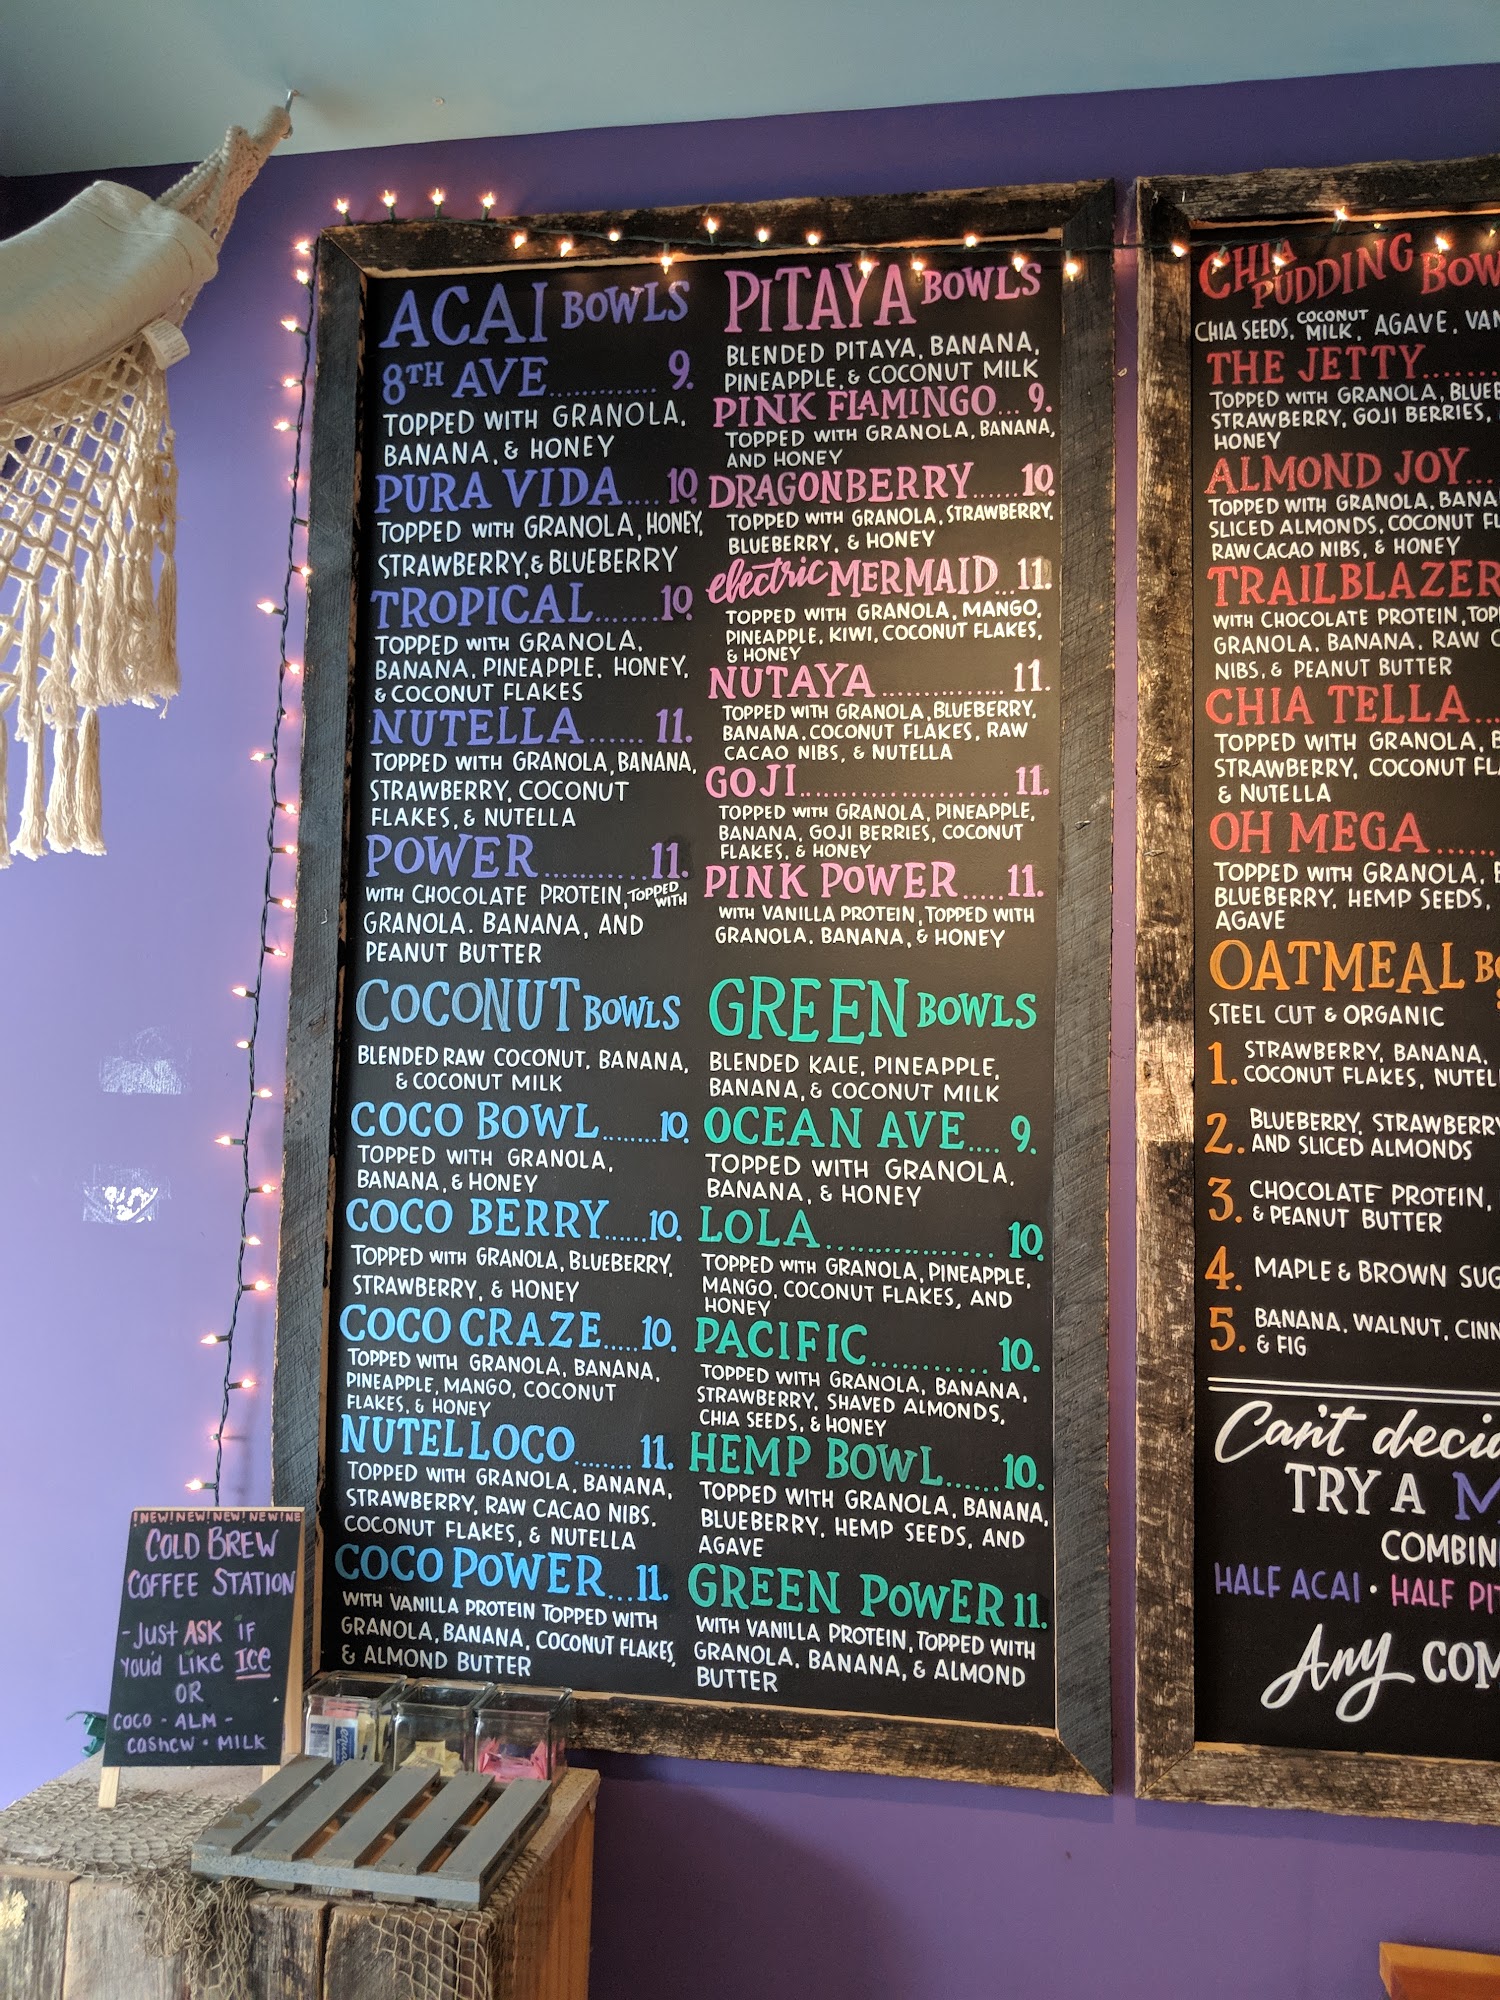 ACAI BOWLS
8TH AVE............ 9.
TOPPED WITH GRANOLA,
BANANA, & HONEY
PURA VIDA.... 10.
TOPPED WITH GRANOLA, HONEY,
STRAWBERRY, & BLUEBERRY
TROPICAL.......10.
TOPPED WITH GRANOLA,
BANANA, PINEAPPLE, HONEY,
& COCONUT FLAKES
NUTELLA...... 11.
TOPPED WITH GRANOLA, BANANA,
STRAWBERRY, COCONUT
FLAKES, & NUTELLA
POWER..........11.
WITH CHOCOLATE PROTEIN, TOPPED WITH
GRANOLA. BANANA, AND
PEANUT BUTTER
COCONUT BOWLS
BLENDED RAW COCONUT, BANANA,
& COCONUT MILK
COCO BOWL........10.
TOPPED WITH GRANOLA,
BANANA, & HONEY
COCO BERRY.....10.
TOPPED WITH GRANOLA, BLUEBERRY,
STRAWBERRY, & HONEY
COCO CRAZE.....10.
TOPPED WITH GRANOLA, BANANA,
PINEAPPLE, MANGO, COCONUT
FLAKES, & HONEY
NUTELLOCO........ 11.
TOPPED WITH GRANOLA, BANANA,
STRAWBERRY, RAW CACAO NIBS,
COCONUT FLAKES, & NUTELLA
COCO POWER...11.
WITH VANILLA PROTEIN TOPPED WITH
GRANOLA, BANANA, COCONUT FLAKES,
& ALMOND BUTTER
PITAYA BOWLS
BLENDED PITAYA, BANANA,
PINEAPPLE, & COCONUT MILK
PINK FLAMINGO... 9.
TOPPED WITH GRANOLA, BANANA,
AND HONEY
DRAGONBERRY......10.
TOPPED WITH GRANOLA, STRAWBERRY,
BLUEBERRY, & HONEY
electric MERMAID..11.
TOPPED WITH GRANOLA, MANGO,
PINEAPPLE, KIWI, COCONUT FLAKES,
& HONEY
NUTAYA.............. 11.
TOPPED WITH GRANOLA, BLUEBERRY,
BANANA, COCONUT FLAKES, RAW
CACAO NIBS, & NUTELLA
GOJI........................ 11.
TOPPED WITH GRANOLA, PINEAPPLE,
BANANA, GOJI BERRIES, COCONUT
FLAKES, & HONEY
PINK POWER.....11.
WITH VANILLA PROTEIN, TOPPED WITH
GRANOLA, BANANA, & HONEY
GREEN BOWLS
BLENDED KALE, PINEAPPLE,
BANANA, & COCONUT MILK
OCEAN AVE.... 9.
TOPPED WITH GRANOLA,
BANANA, & HONEY
LOLA................. 10.
TOPPED WITH GRANOLA, PINEAPPLE,
MANGO, COCONUT FLAKES, AND
HONEY
PACIFIC........... 10.
TOPPED WITH GRANOLA, BANANA,
STRAWBERRY, SHAVED ALMONDS,
CHIA SEEDS, & HONEY
HEMP BOWL......10.
TOPPED WITH GRANOLA, BANANA,
BLUEBERRY, HEMP SEEDS, AND
AGAVE
GREEN POWER 11.
WITH VANILLA PROTEIN, TOPPED WITH
GRANOLA, BANANA, & ALMOND
BUTTER
CHIA PUDDING
CHIA SEEDS, COCONUT MILK, AGAVE,
THE JETTY.......
TOPPED WITH GRANOLA,
STRAWBERRY, GOJI BERRIES,
HONEY
ALMOND JOY...
TOPPED WITH GRANOLA,
SLICED ALMONDS, COCONUT
RAW CACAO NIBS, & HONEY
TRAILBLAZER
WITH CHOCOLATE PROTEIN,
GRANOLA, BANANA, RAW
NIBS, & PEANUT BUTTER
CHIA TELLA...
TOPPED WITH GRANOLA,
STRAWBERRY, COCONUT
& NUTELLA
OH MEGA......
TOPPED WITH GRANOLA,
BLUEBERRY, HEMP SEEDS,
AGAVE
OATMEAL
STEEL CUT & ORGANIC
1. STRAWBERRY, BANANA,
COCONUT FLAKES,
2. BLUEBERRY, STRAWBERRY
AND SLICED ALMONDS
3. CHOCOLATE PROTEIN,
& PEANUT BUTTER
4. MAPLE & BROWN
5. BANANA, WALNUT,
& FIG
Can't
TRY A
HALF ACAI • HALF
Any
!NEW!NEW!NEW!NEW!NE
COLD BREW
COFFEE STATION
- JUST ASK IF
YOU'D LIKE ICE
OR
COCO - ALM -
CASHEW • MILK